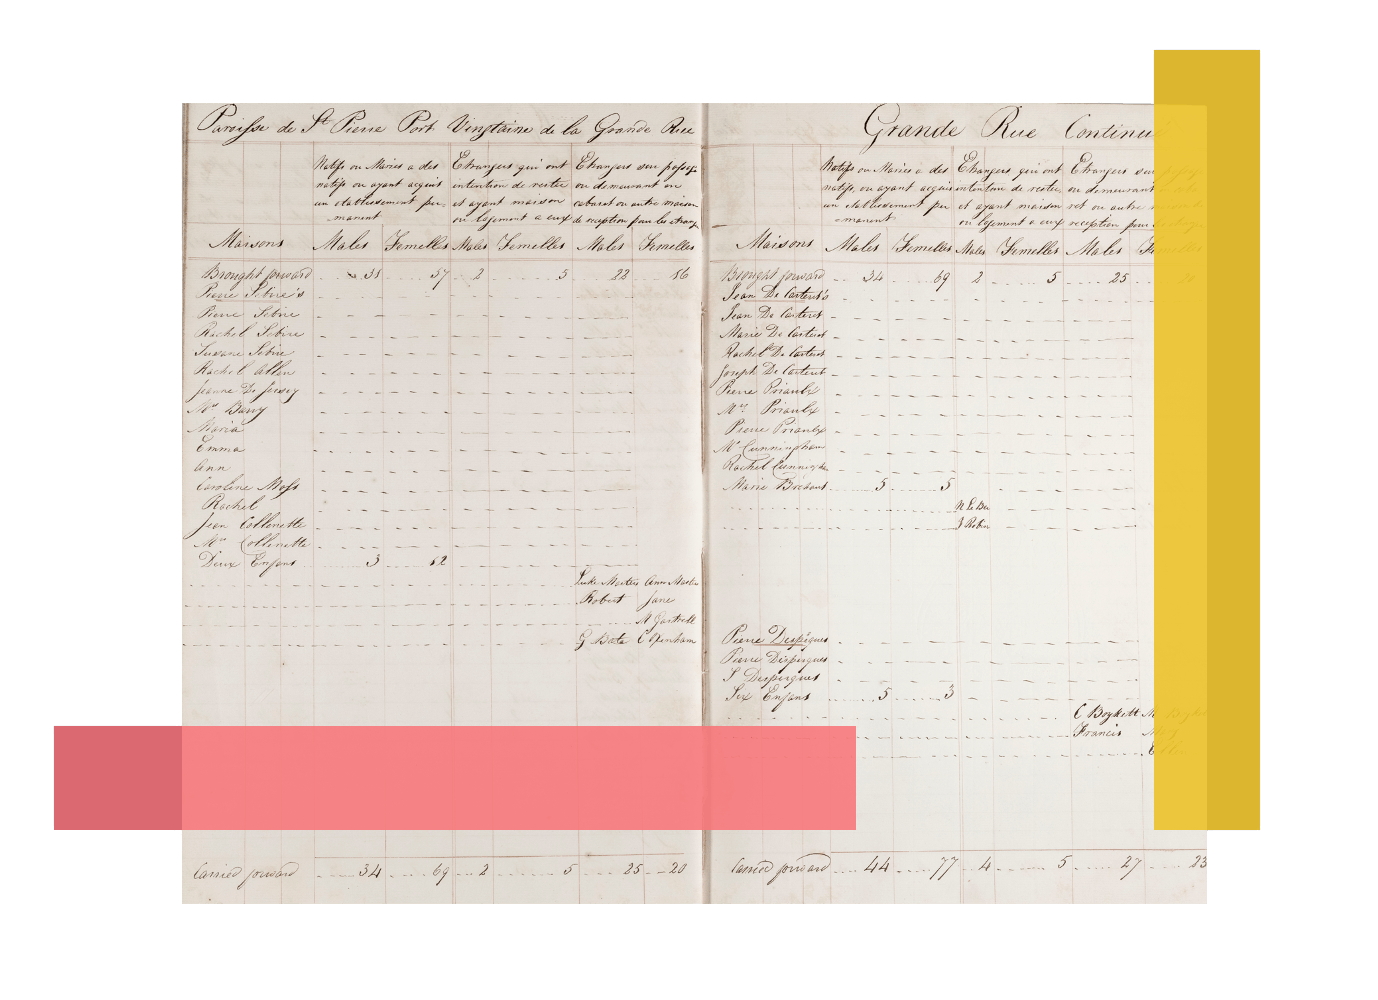 Paroisse de St Pierre Port Vingtaine de la Grande Rue
Natifs ou Mariés a des Etrangers qui ont Etrangers sou passag
natifs ou ayant acquit intention de rester ou demeurant en
un etablissement per- et ayant maison cabaret ou autre maison
manent ou logement a eux de reception pour les etrang
Maisons Males Femelles Males Femelles Males Femelles
Brought forward 31 57 2 5 22 16
Pierre Sebire's
Pierre Sebire
Rachel Sebire
Susane Sebire
Rachel Allen
Jeanne De Jersey
Mrs Barry
Maria
Emma
Ann
Caroline Moss
Rachel
Jean Collenette
Mrs Collenette
Deux Enfans 3 12
Luke Martin Ann Martin
Robert Jane
M Gartrell
G Bate C Openham
Carried forward 34 69 2 5 25 20
Grande Rue Continué
Natifs ou Mariés a des Etrangers qui ont Etrangers sou
natifs, ou ayant acquis intention de rester, ou demeurant
un etablissement per et ayant maison ret ou autre
manent. ou logement a eux reception pour
Maisons Males Femelles Males Femelles Males Femelles
Brought forward 34 69 2 5 25 20
Jean De Carteret's
Jean De Carteret
Marie De Carteret
Rachel De Carteret
Joseph De Carteret
Pierre Priaulx
Mrs Priaulx
Pierre Priaulx
Mr Cunningham
Rachel Cunningham
Marie Brehaut 5 5
N Le Bu
J Robin
Pierre Despérques
Pierre Desperques
S Desperques
Six Enfans 5 3
C Boykett M Boykett
Francis Mary
Carried forward 44 77 4 5 27 23